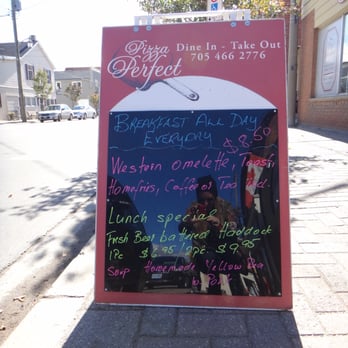 Pizza Perfect
Dine In - Take Out
705 466 2776
BREAKFAST ALL DAY
EVERYDAY
$8.50
Western omelette, Toast,
Homefries, Coffee or Tea
Lunch special
Fresh Beer battered Haddock
1Pc $6.95/2pc. $9.95
Soup Homemade Yellow Pea